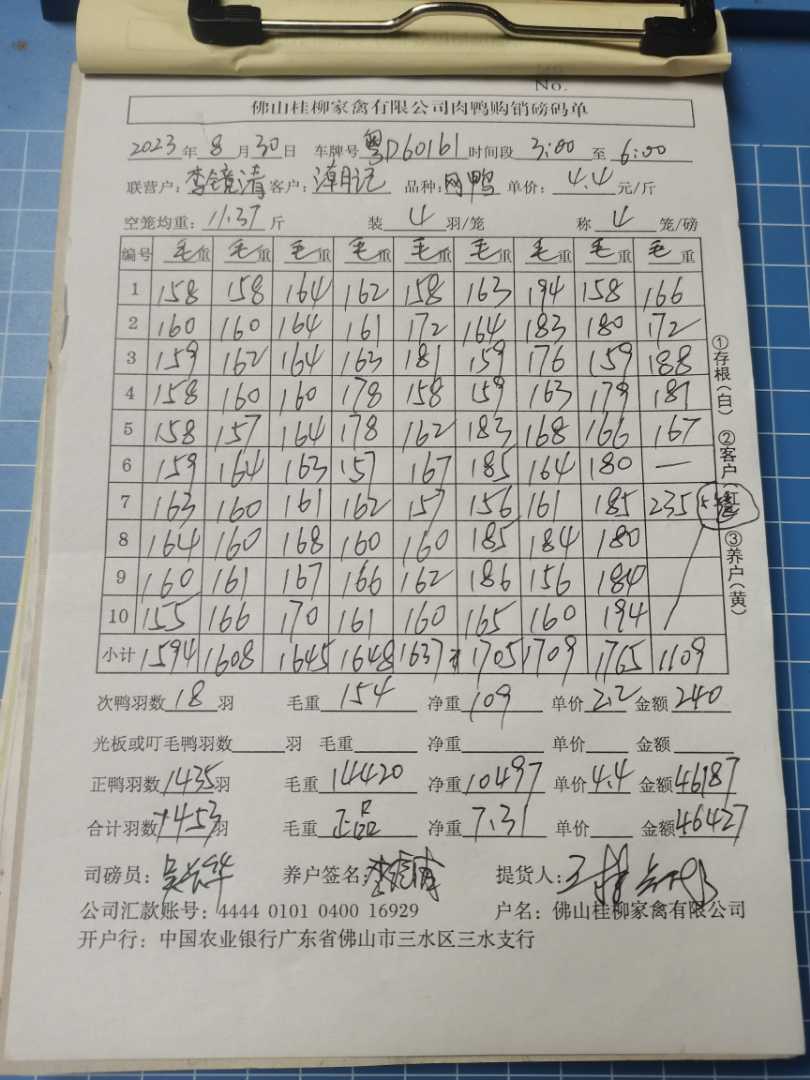 No.
佛山桂柳家禽有限公司肉鸭购销磅码单
2023年8月30日 车牌号粤D60161时间段3:00至6:00
联营户:李镜清客户:潮记 品种:网鸭 单价:4.4元/斤
空笼均重:11.37斤 装4羽/笼 称4笼/磅
编号 毛重 毛重 毛重 毛重 毛重 毛重 毛重 毛重 毛重
1 158 158 164 162 158 163 194 158 166
2 160 160 164 161 172 164 183 180 172
3 159 162 164 163 181 159 176 159 188
4 158 160 160 178 158 159 163 179 181
5 158 157 164 178 162 183 168 166 167
6 159 164 163 157 167 185 164 180 —
7 163 160 161 162 157 156 161 185 235
8 164 160 168 160 160 185 184 180
9 160 161 167 166 162 186 156 184
10 155 166 170 161 160 165 160 194
小计 1594 1608 1645 1648 1637 1705 1709 1765 1109
①存根(白) ②客户(红) ③养户(黄)
次鸭羽数18羽 毛重154 净重109 单价2.2 金额240
光板或叮毛鸭羽数 羽 毛重 净重 单价 金额
正鸭羽数1435羽 毛重14420 净重10497 单价4.4 金额46187
合计羽数1453羽 毛重正品 净重7.31 单价 金额46427
司磅员: 养户签名: 提货人:
公司汇款账号:4444 0101 0400 16929 户名:佛山桂柳家禽有限公司
开户行:中国农业银行广东省佛山市三水区三水支行